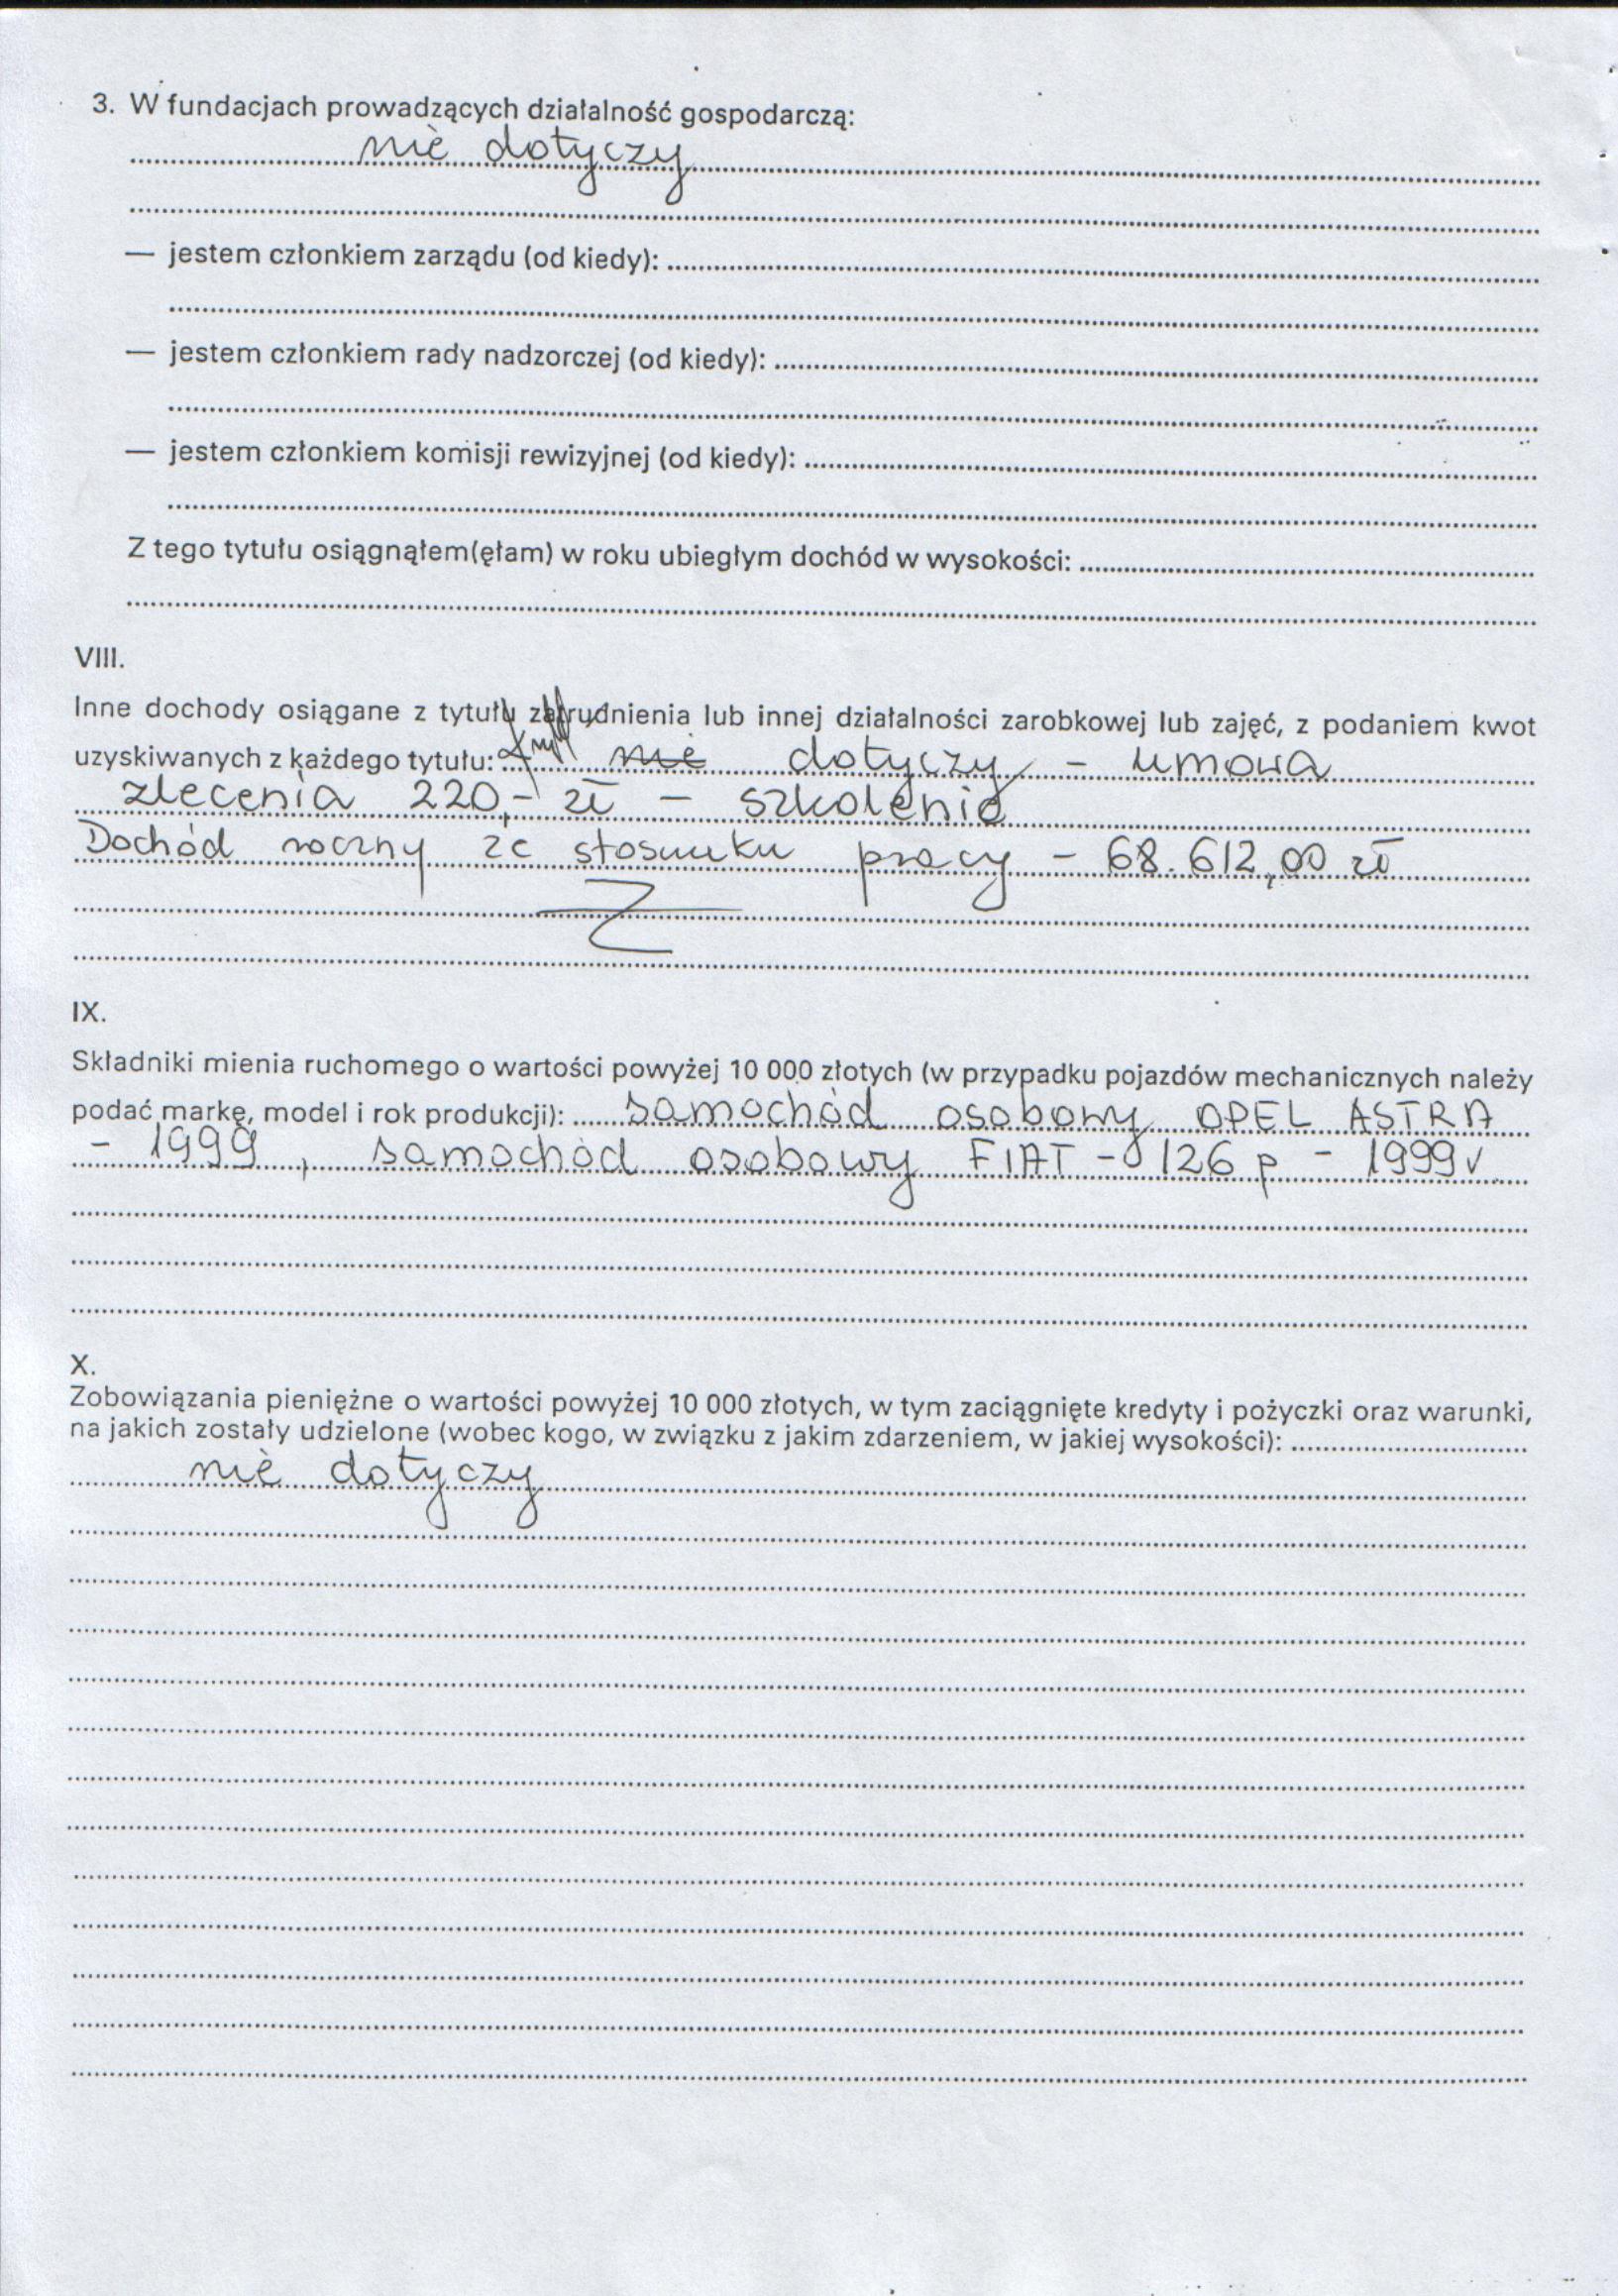 3. W fundacjach prowadzących działalność gospodarczą:
nie dotyczy
— jestem członkiem zarządu (od kiedy):
— jestem członkiem rady nadzorczej (od kiedy):
— jestem członkiem komisji rewizyjnej (od kiedy):
Z tego tytułu osiągnąłem(ęłam) w roku ubiegłym dochód w wysokości:
VIII.
Inne dochody osiągane z tytułu zatrudnienia lub innej działalności zarobkowej lub zajęć, z podaniem kwot
uzyskiwanych z każdego tytułu: nie dotyczy - umowa
zlecenia 220,- zł - szkolenie
Dochód roczny ze stosunku pracy - 68.612,00 zł
IX.
Składniki mienia ruchomego o wartości powyżej 10 000 złotych (w przypadku pojazdów mechanicznych należy
podać markę, model i rok produkcji): samochód osobowy OPEL ASTRA
- 1999, samochód osobowy FIAT - 126 p - 1999 r
X.
Zobowiązania pieniężne o wartości powyżej 10 000 złotych, w tym zaciągnięte kredyty i pożyczki oraz warunki,
na jakich zostały udzielone (wobec kogo, w związku z jakim zdarzeniem, w jakiej wysokości):
nie dotyczy